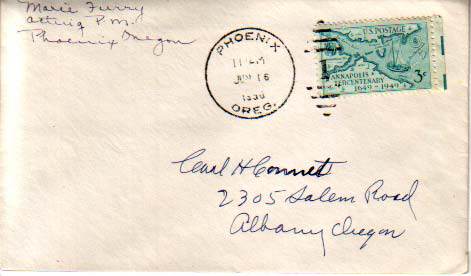 Marie Furry
acting P.M.
Phoenix Oregon
PHOENIX
11 AM
OREG.
U.S. POSTAGE
ANNAPOLIS
TERCENTENARY
1649-1949
3¢
2305 Salem Road
Albany Oregon